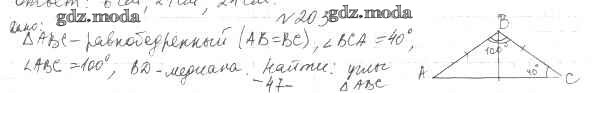 Ответ: 6 см, 21 см, 21 см.
gdz.moda
N 203
gdz.moda
Дано:
△ABC - равнобедренный (AB=BC), ∠BCA = 40°,
∠ABC = 100°, BD - медиана. Найти: углы
△ABC
-47-
B
100°
A
40°
C